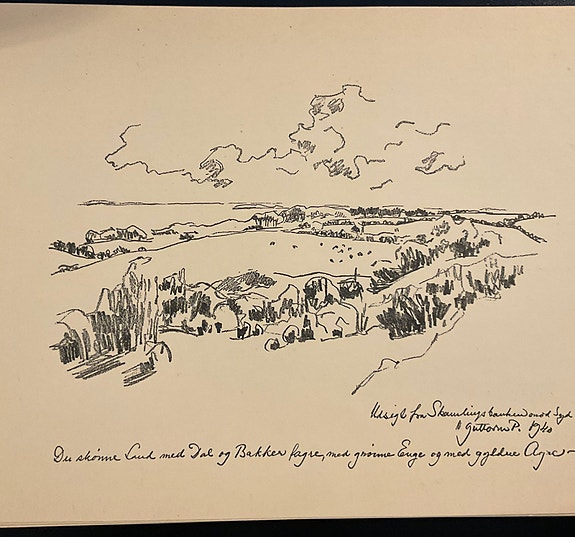 Udsigt fra Skamlingsbanken mod Syd
Guttorm P. 1940
Du skønne Land med Dal og Bakker fagre, med grønne Enge og med gyldne Agre –